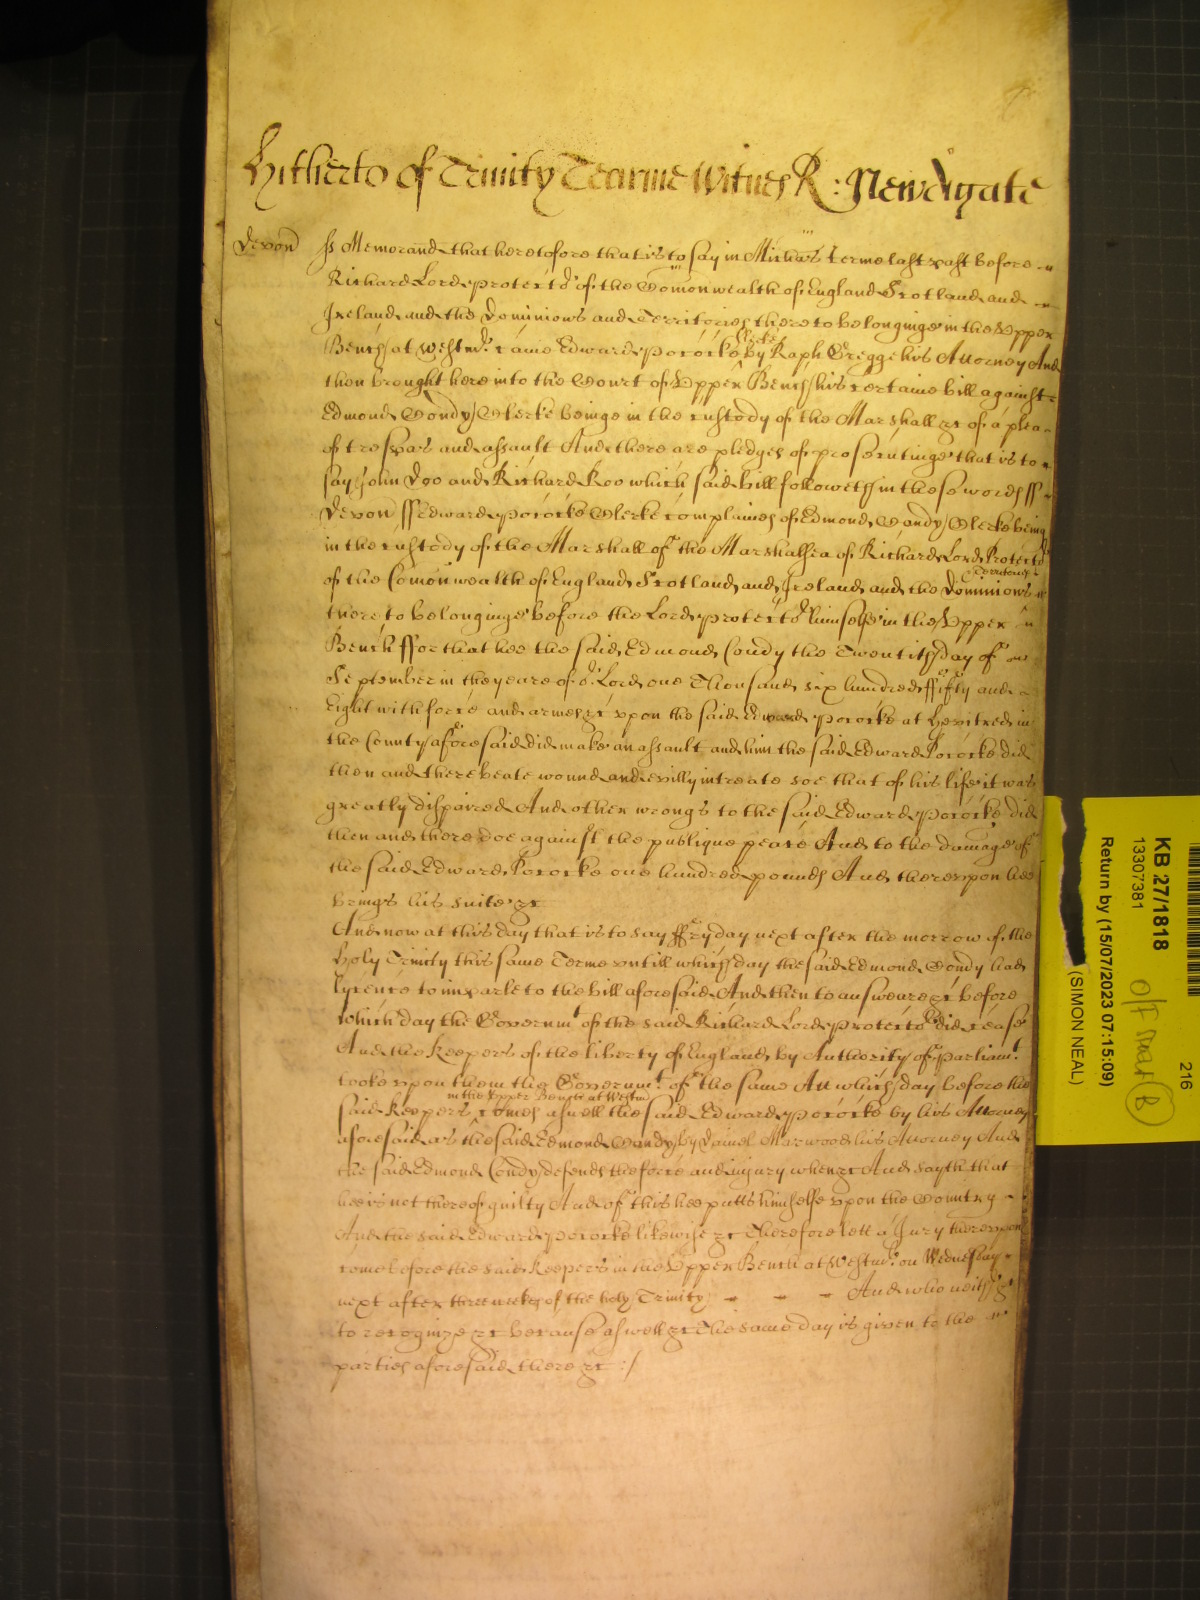 Hitherto of Trinity Tearme Witnes R: Newdigate
Devon ss Memorand that heretofore that is to say in Michas terme last past before
Richard Lord Protector of the Comonwealth of England Scotland and
Ireland and the Dominions and Territories thereto belonginge in the Upper
Bench at Westmr came Edward Pococke Clerke by Raph Gregge his Attorney And
then brought here into the Court of Upper Bench his certaine bill against
Edmond Condy Clerke beinge in the custody of the Marshall &c of a plea
of trespas and assault And there are pledges of prosecutinge that is to
say John Doo and Richard Roo which said bill followeth in these words ss
Devon ss Edward Pococke Clerke complaines of Edmond Condy Clerke being
in the custody of the Marshall of the Marshalsea of Richard Lord Protector
of the Comonwealth of England Scotland and Ireland and the Dominions & Territories
thereto belonginge before the Lord Protector himselfe in the Upper
Bench ffor that hee the said Edmond Condy the Twentith day of
September in the yeare of or Lord one Thousand six hundred ffifty and
Eight with force and armes &c upon the said Edward Pococke at Hevitred in
the County aforesaid did make an assault and him the said Edward Pococke did
then and there beate wound and evilly intreate soe that of his life it was
greatly dispaired And other wrongs to the said Edward Pococke did
then and there doe against the publique peace And to the damage of
the said Edward Pococke one hundred pounds And thereupon hee
brings his suite &c
And now at this day that is to say ffryday next after the morrow of the
holy Trinity this same Terme untill which day the said Edmond Condy had
lycence to imparle to the bill aforesaid And then to answeare &c before
which day the Governmt of the said Richard Lord Protector did cease
And the Keepers of the liberty of England by Authority of Parliamt
tooke upon them the Governmt of the same Att which day before the
said Keepers in the Upper Bench at Westmr comes aswell the said Edward Pococke by his Attorney
aforesaid as the said Edmond Condy by Daniel Marwood his Attorney And
the said Edmond Condy defends the force and injury when &c And sayth that
hee is not thereof guilty And of this hee putts himselfe upon the Country
And the said Edward Pococke likewise &c Therefore lett a Jury thereupon
come before the said Keepers in the Upper Bench at Westmr on Wednesday
next after three weekes of the holy Trinity And who neither &c
to recognize &c because aswell &c The same day is given to the
parties aforesaid there &c :/
KB 27/1818
13307381
Return by (15/07/2023 07:15:09)
(SIMON NEAL)
216